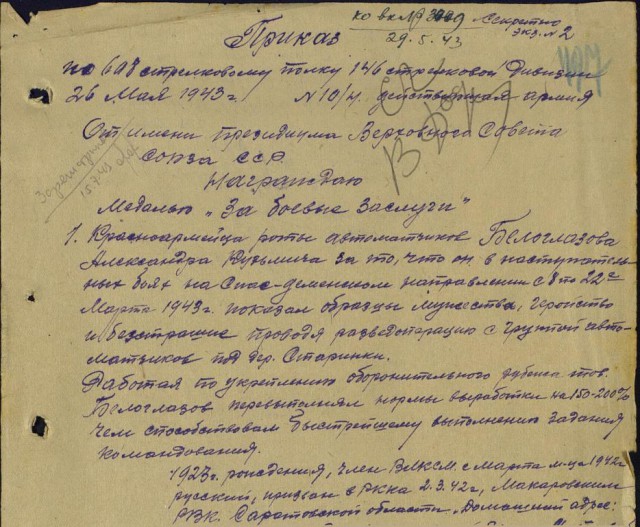 ко вх № Секретно
29.5.43 экз. № 2
Приказ
по 698 стрелковому полку 146 стрелковой дивизии
26 Мая 1943 г. N 10/н. действующая армия
От имени президиума Верховного Совета
Союза ССР.
Награждаю
Медалью „За боевые заслуги"
1. Красноармейца роты автоматчиков Белоглазова
Александра Кузьмича за то, что он в наступатель-
ных боях на Спас-деменском направлении с 8 по 22
Марта 1943 г. показал образцы мужества, геройство
и безстрашие проводя разведоперацию с группой авто-
матчиков под дер. Старинки.
Работая по укреплению оборонительного рубежа тов.
Белоглазов перевыполнял нормы выработки на 150-200%
чем способствовал быстрейшему выполнению задания
командования.
1923 г. рождения, член ВЛКСМ с Марта м-ца 1942 г
русский, призван в РККА 2.3.42 г., Макаровским
РВК. Саратовской области. Домашний адрес:
15.7.43